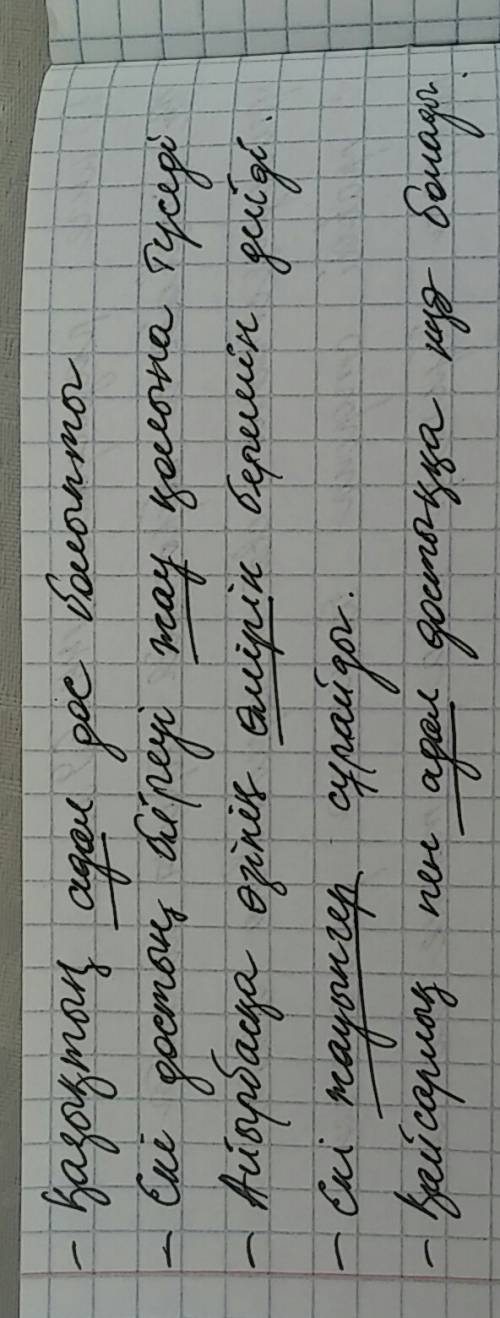 - Қазақтың адал дос болыпты
- Екі достың біреуі жау қолына түседі
- Айырбасқа өзінің өмірін беремін дейді.
- Екі жауынгер сұрайды.
- Қайсарлық пен адал достыққа куә болады.